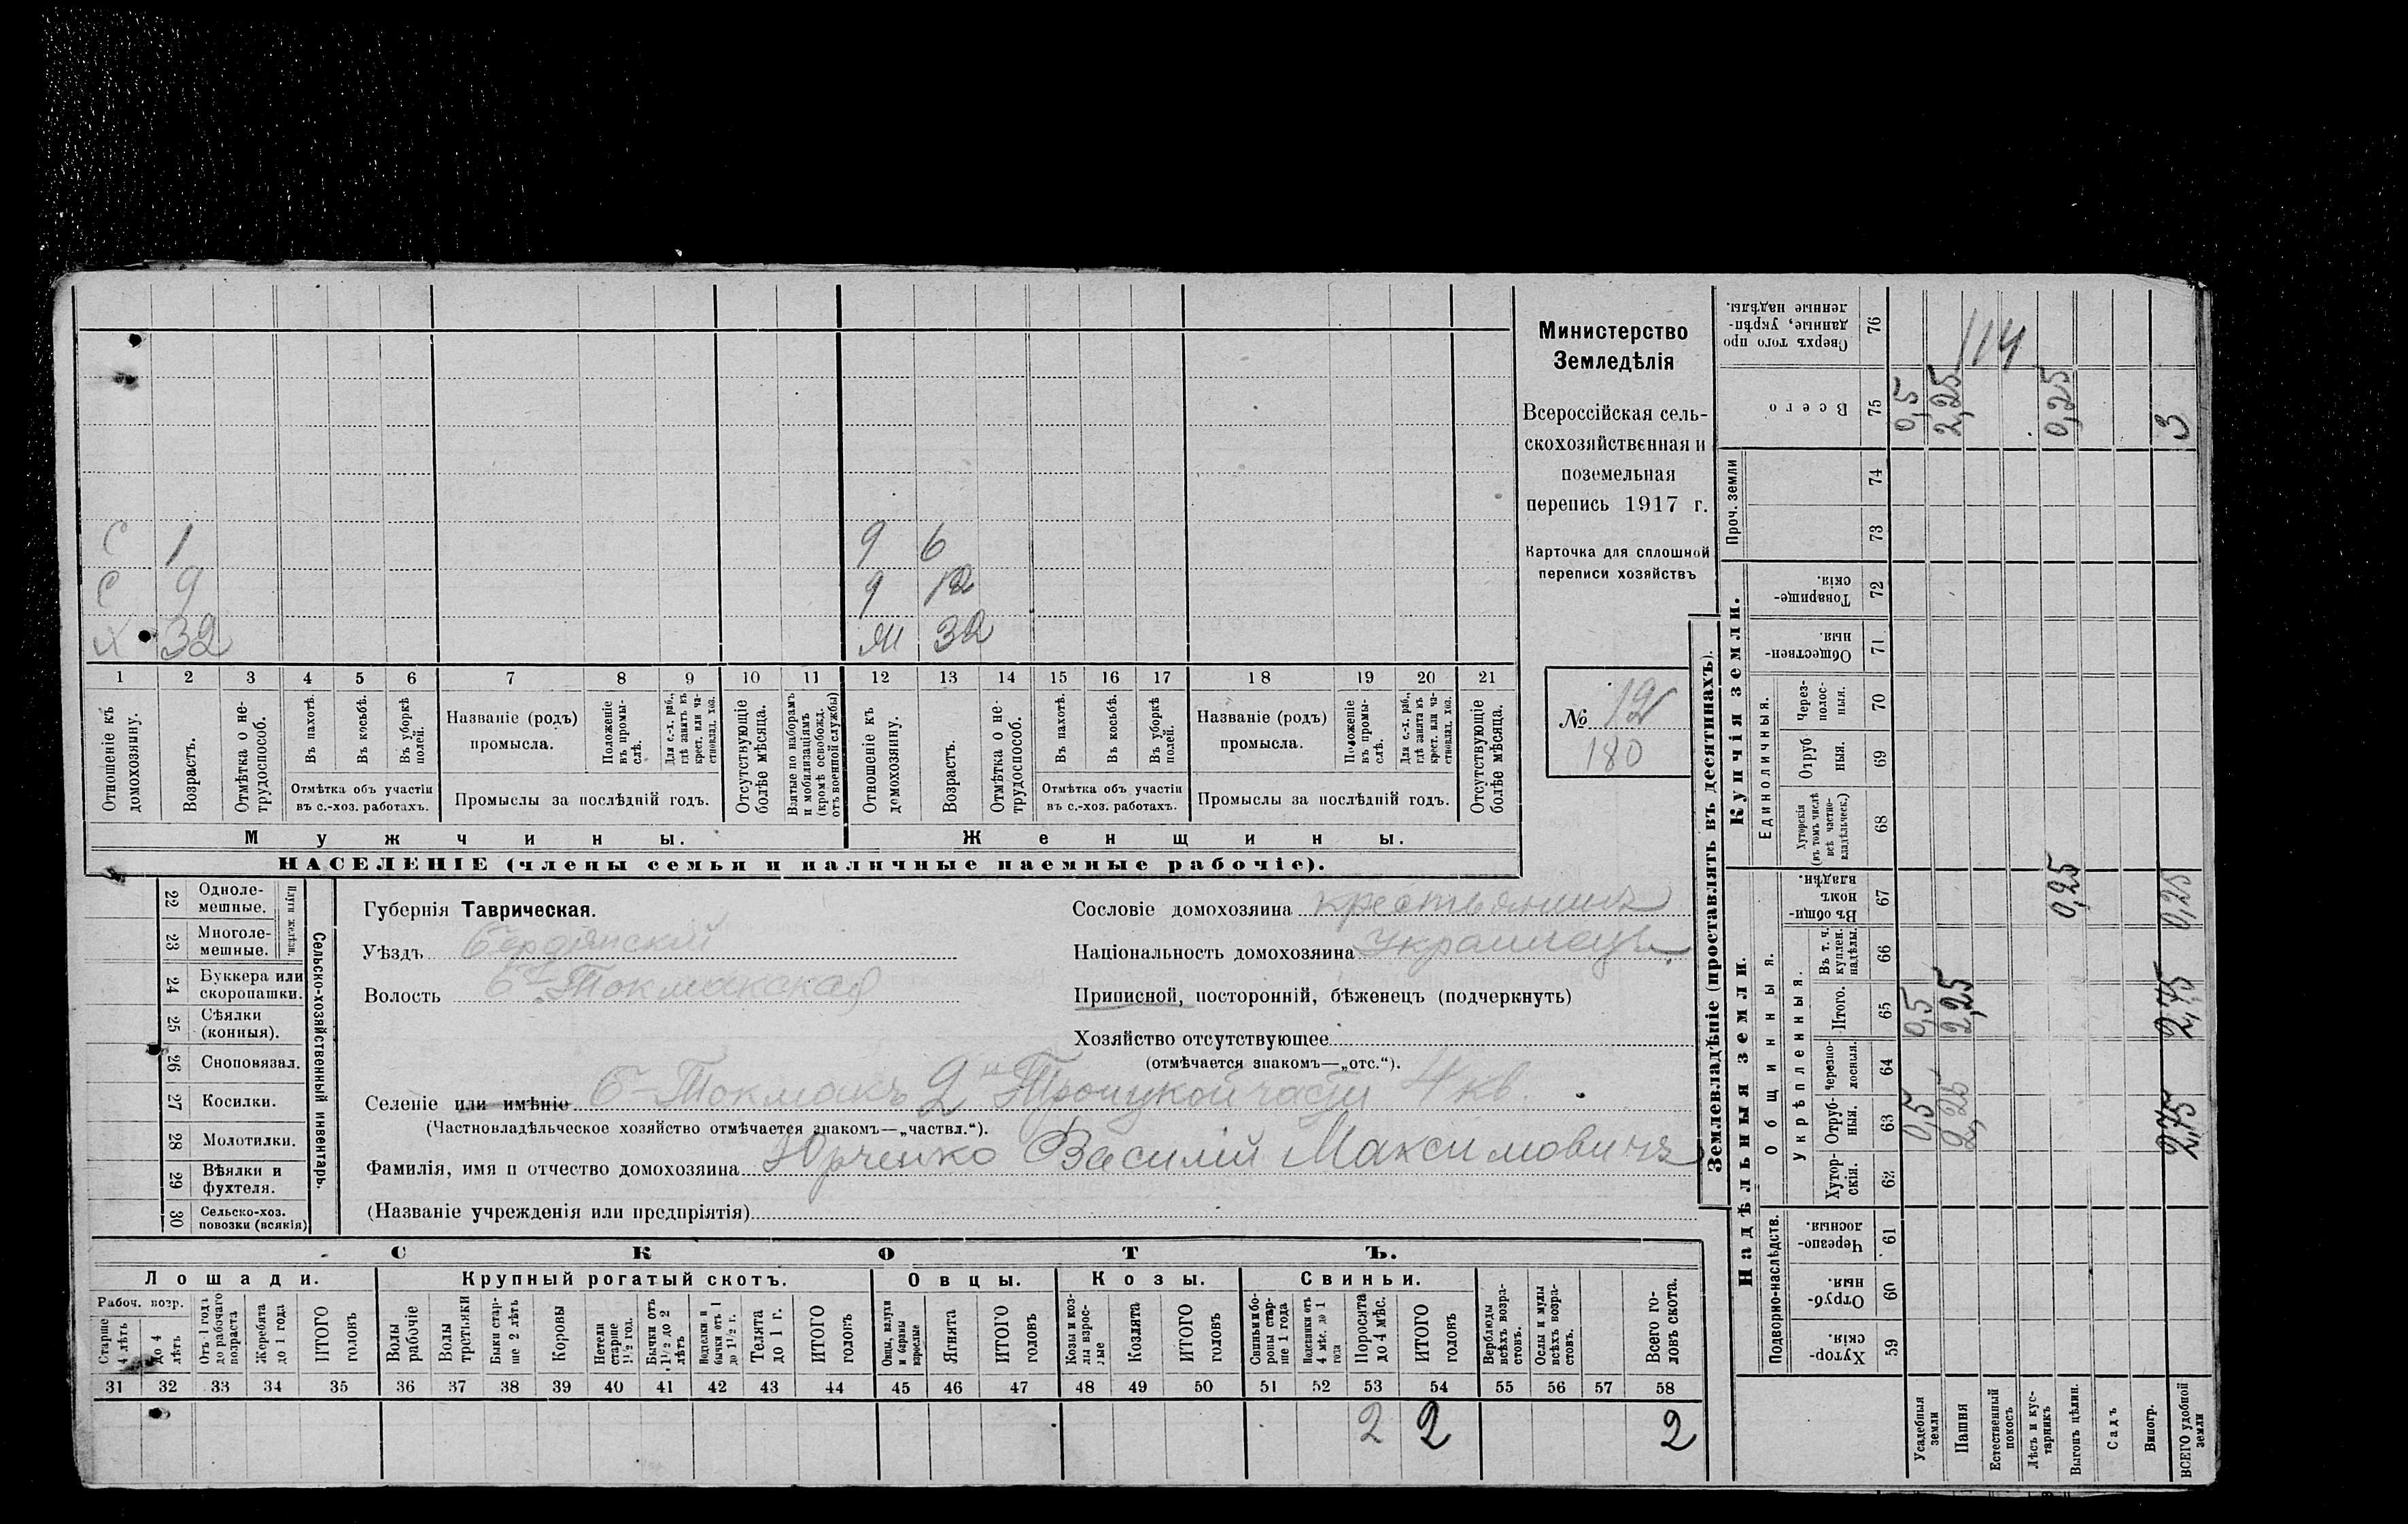 Министерство
Земледѣлія
Всероссійская сель-
скохозяйственная и
поземельная
перепись 1917 г.
Карточка для сплошной
переписи хозяйствъ
№ 12
180
С 1
С 9
Х 32
9 6
9 12
М 32
1 2 3 4 5 6 7 8 9 10 11 12 13 14 15 16 17 18 19 20 21
Отношеніе къ домохозяину.
Возрастъ.
Отмѣтка о не-
трудоспособ.
Въ пахотѣ.
Въ косьбѣ.
Въ уборкѣ
полей.
Отмѣтка объ участіи
въ с.-хоз. работахъ.
Названіе (родъ)
промысла.
Положеніе
въ промы-
слѣ.
Для с.-х. раб.,
гдѣ занятъ въ
крест. или ча-
стновлад. хоз.
Промыслы за послѣдній годъ.
Отсутствующіе
болѣе мѣсяца.
Взятые по наборамъ
и мобилизаціямъ
(кромѣ освобожд.
отъ военной службы)
Отношеніе къ
домохозяину.
Возрастъ.
Отмѣтка о не-
трудоспособ.
Въ пахотѣ.
Въ косьбѣ.
Въ уборкѣ
полей.
Отмѣтка объ участіи
въ с.-хоз. работахъ.
Названіе (родъ)
промысла.
Положеніе
въ промы-
слѣ.
Для с.-х. раб.,
гдѣ занята въ
крест. или ча-
стновлад. хоз.
Промыслы за послѣдній годъ.
Отсутствующіе
болѣе мѣсяца.
Мужчины.
Женщины.
НАСЕЛЕНІЕ (члены семьи и наличные наемные рабочіе).
22 Одноле-
мешные.
23 Многоле-
мешные.
Плуги желѣзн.
24 Буккера или
скоропашки.
25 Сѣялки
(конныя).
26 Сноповязал.
27 Косилки.
28 Молотилки.
29 Вѣялки и
фухтеля.
30 Сельско-хоз.
повозки (всякія)
Сельско-хозяйственный инвентарь.
Губернія Таврическая.
Уѣздъ Бердянскій
Волость Б. Токмакская
Сословіе домохозяина крестьянинъ
Національность домохозяина Украинецъ
Приписной, посторонній, бѣженецъ (подчеркнуть)
Хозяйство отсутствующее
(отмѣчается знакомъ—„отс.“).
Селеніе или имѣніе Б-Токмакъ 2й Троицкой части 4 кв.
(Частновладѣльческое хозяйство отмѣчается знакомъ—„частвл.“).
Фамилія, имя и отчество домохозяина Юрченко Василій Максимовичъ
(Названіе учрежденія или предпріятія)
СКОТЪ.
Лошади. Крупный рогатый скотъ. Овцы. Козы. Свиньи.
Рабоч. возр.
Старше
4 лѣтъ
до 4
лѣтъ
Отъ 1 годъ
до рабочаго
возраста
Жеребята
до 1 года
ИТОГО
головъ
Волы
рабочіе
Волы
третьяки
Быки стар-
ше 2 лѣтъ
Коровы
Нетели
старше
1½ год.
Бычки отъ
1½ до 2
лѣтъ
Подтелки и
бычки отъ 1
до 1½ г.
Телята
до 1 г.
ИТОГО
головъ
Овцы, валухи
и бараны
взрослые
Ягнята
ИТОГО
головъ
Козы и коз-
лы взрос-
лые
Козлята
ИТОГО
головъ
Свиньи и бо-
ровы стар-
ше 1 года
Подсвинки отъ
4 мѣс. до 1
года
Поросята
до 4 мѣс.
ИТОГО
головъ
Верблюды
всѣхъ возра-
стовъ.
Ослы и мулы
всѣхъ возра-
стовъ.
Всего го-
ловъ скота.
31 32 33 34 35 36 37 38 39 40 41 42 43 44 45 46 47 48 49 50 51 52 53 54 55 56 57 58
2 2 2
Землевладѣніе (проставлять въ десятинахъ).
Надѣльныя земли.
Купчія земли.
Проч. земли
Подворно-наслѣдств.
Общинныя.
Укрѣпленныя.
Единоличныя.
59 Хутор-
скія.
60 Отруб-
ныя.
61 Черезпо-
лосныя.
62 Хутор-
скія.
63 Отруб-
ныя.
64 Черезпо-
лосныя.
65 Итого.
66 Въ т. ч.
куплен.
надѣлы.
67 Въ общи-
номъ
владѣн.
68 Хуторскія
(въ томъ числѣ
всѣ частно-
владѣльческ.)
69 Отруб
ныя.
70 Через-
полос-
ныя.
71 Обществен-
ныя.
72 Товарище-
скія.
73
74
75 Всего
76 Сверхъ того про
данные, укрѣп-
ленные надѣлы.
Усадебныя
земли
0,5 0,5 0,5
Пашня
2,25 2,25 2,25
Естественный
покосъ
114
Лѣсъ и кус-
тарникъ
Выгонъ цѣлин.
0,25 0,25
Садъ
Виногр.
ВСЕГО удобной
земли
2,75 2,75 0,25 3